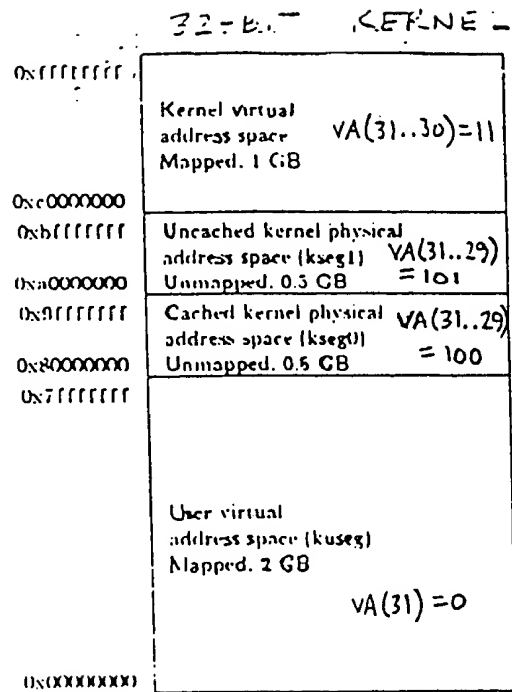 32-BIT KERNEL
0xffffffff
Kernel virtual
address space VA(31..30)=11
Mapped. 1 GB
0xc0000000
0xbfffffff
Uncached kernel physical
address space (kseg1) VA(31..29)
Unmapped. 0.5 GB = 101
0xa0000000
0x9fffffff
Cached kernel physical VA(31..29)
address space (kseg0)
Unmapped. 0.5 GB = 100
0x80000000
0x7fffffff
User virtual
address space (kuseg)
Mapped. 2 GB
VA(31) =0
0x00000000